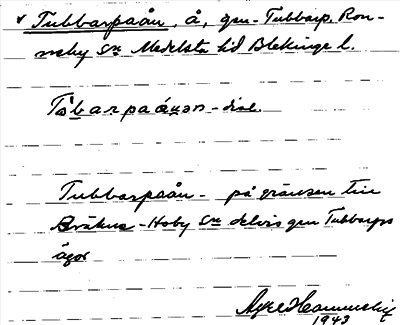 Tubbarpaån, å, gm Tubbarp, Ron-
neby sn Medelsta hd Blekinge l.
Tåbarpaáușən - dial.
Tubbarpaån - på gränsen till
Bräkne-Hoby sn delvis gm Tubbarps
ägor
1943